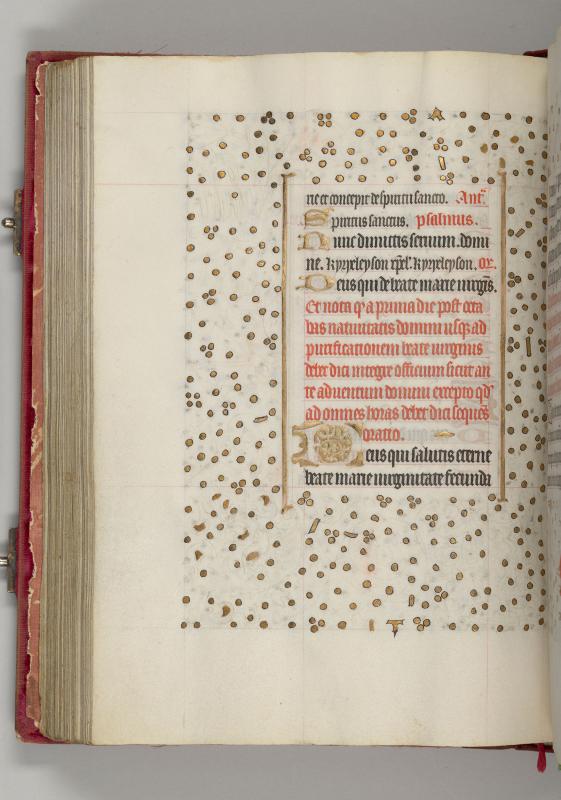 ne et concepit de spiritu sancto. Ant
Spiritus sanctus. psalmus.
Nunc dimittis seruum. domi
ne. Kyrieleyson xp̄el. Kyrieleyson. or.
Deus qui de beate marie uirgīs.
Et nota q a prima die post octa
bas natiuitatis domini usq ad
purificationem beate uirginis
debet dici integre officium sicut an
te aduentum domini excepto qd
ad omnes horas debet dici sequēs
oratio.
Deus qui salutis eterne
beate marie uirginitate fecunda